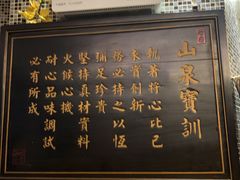 山泉寶訓
執著將心比己
創新
必持之以恆
彌足珍貴
堅持真材實料
火候心機
耐心品味調試
必有所成